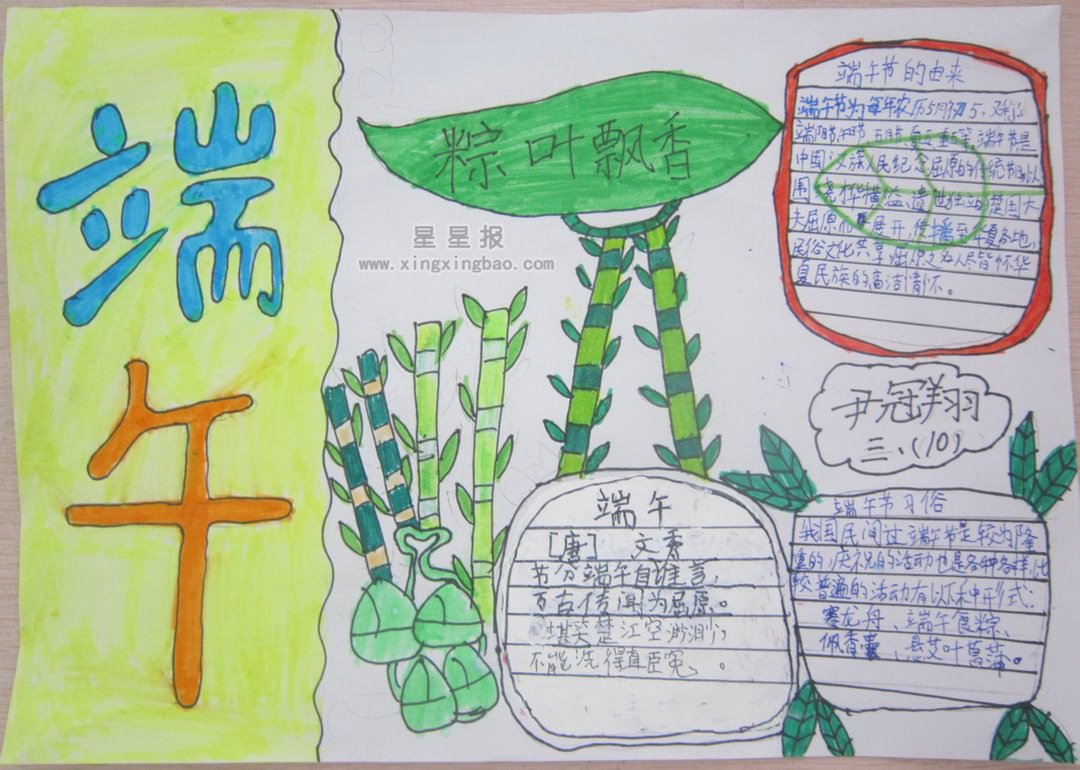 端午
粽叶飘香
星星报
www.xingxingbao.com
端午节的由来
端午节为每年农历5月初5，又称
端阳节、午日节、五月节
中国汉族人民纪念屈原的传统节日以
围绕才华横溢、遗世独立的楚国大
夫屈原而展开，传播至华夏各地，
民俗文化共享，屈原之名人尽皆知怀华
夏民族的高洁情怀。
尹冠翔
三、(10)
端午
[唐] 文秀
节分端午自谁言，
万古传闻为屈原。
堪笑楚江空渺渺，
不能洗得直臣冤。
端午节习俗
我国民间过端午节是较为隆
重的，庆祝的活动也是各种各样，比
较普遍的活动有以下种形式：
赛龙舟、端午食粽、
佩香囊、悬艾叶菖蒲。